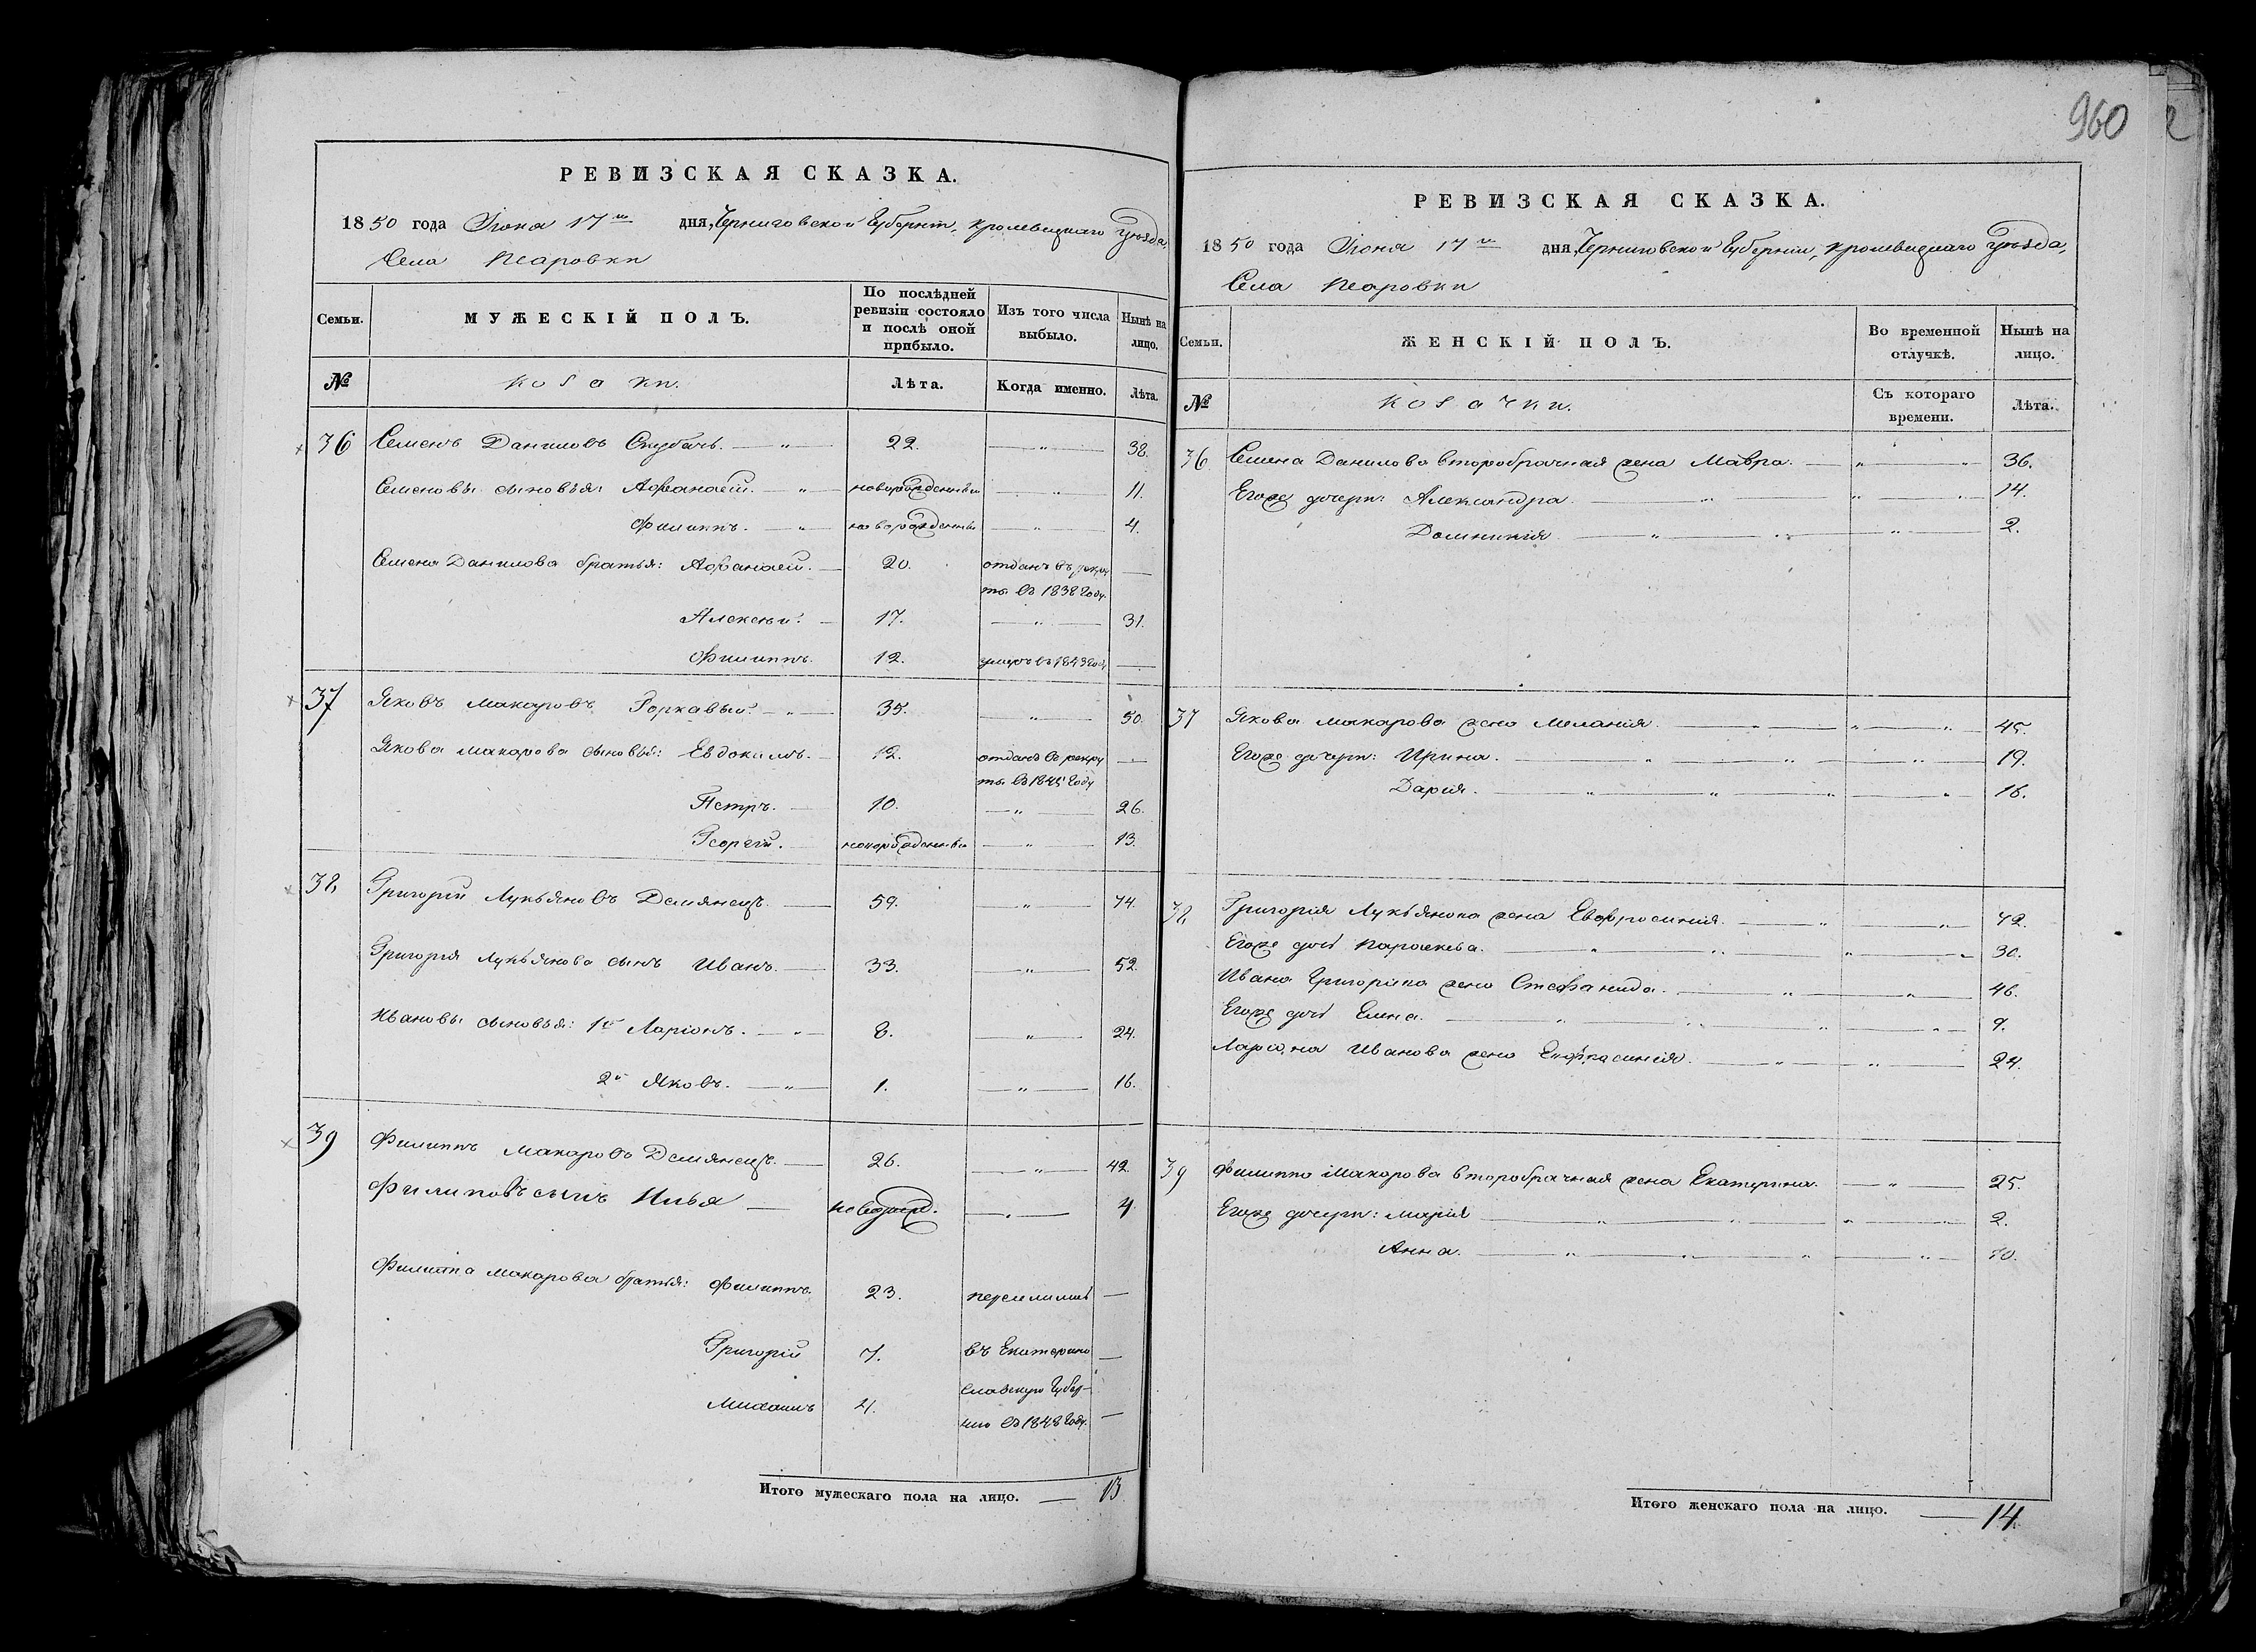 960
РЕВИЗСКАЯ СКАЗКА.
1850 года Іюня 17 дня, Черниговской Губерніи, Кролевецкаго Уѣзда,
Села
Семьи.
МУЖЕСКІЙ ПОЛЪ.
По послѣдней ревизіи состояло и послѣ оной прибыло.
Изъ того числа выбыло.
Нынѣ на лицо.
№
Козаки.
Лѣта.
Когда именно.
Лѣта.
36 Семенъ Даниловъ 22. — " — 38.
Семеновы сыновья: Афанасій. — " — новорожденный — " — 11.
Филиппъ. — " — новорожденный — " — 4.
Семена Данилова братья: Афанасій. — 20. отданъ въ рекру —
ты въ 1838 году.
Алексѣй. — 17. — " — 31.
Филиппъ. 12. умеръ въ 1843 году —
37 Яковъ Макаровъ Горкавый. — " — 35. — " — 50.
Якова Макарова сыновья: Евдокимъ. — 12. отданъ въ рекру —
ты въ году
Петръ. — 10. — " — 26.
Георгій. — новорожденный — " — 13.
38 Григорій Лукьяновъ Демянецъ. — 59. — " — 74.
Григорія Лукьянова сынъ Иванъ. — 33. — " — 52.
Ивановы сыновья: 1й Ларіонъ. — " — 8. — " — 24.
2й Яковъ. — " — 1. — " — 16.
39 Филиппъ Макаровъ Демянецъ. — 26. — " — 42.
Филиповъ сынъ Илья — новорожд. — " — 4
Филиппа Макарова братья: Филиппъ. 23. переселились —
Григорій 7. въ Екатерино —
Михаилъ 4. славскую Губер-
нію въ 1848 году. —
Итого мужескаго пола на лицо. — 13.
РЕВИЗСКАЯ СКАЗКА.
1850 года Іюня 17 дня, Черниговской Губерніи, Кролевецкаго Уѣзда,
Села
Семьи.
ЖЕНСКІЙ ПОЛЪ.
Во временной отлучкѣ.
Нынѣ на лицо.
№
Козачки.
Съ котораго времени.
Лѣта.
36 Семена Данилова второбрачная жена Мавра. — " — " — 36.
Егоже дочери: Александра — " — " — " — 14.
Домникія — " — " — " — 2.
37 Якова Макарова жена Меланія. — " — " — " — 45.
Егоже дочери: Ирина. — " — " — " — 19.
Дарія. — " — " — " — " — 16.
38 Григорія Лукьянова жена Евфросинія. — " — " — 72.
Егоже дочь Параскева. — " — " — " — " — 30.
Ивана Григорьева жена Стефанида. — " — " — 46.
Егоже дочь Елена. — " — " — " — " — 9.
Ларіона Иванова жена — " — " — 24.
39 Филиппа Макарова второбрачная жена Екатерина. — " — 25.
Егоже дочери: Марія — " — " — " — " — 2.
Анна. — " — " — " — " — 10.
Итого женскаго пола на лицо. — 14.